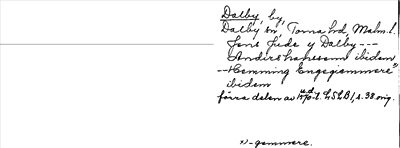 Dalby, by,
Dalby sn, Torna hd, Malm. l.
Jens Jude y Dalby ---
Andirs hanessøn ibidem
--- Hemming Engegiemmere x)
ibidem
förra delen av 1570-t. LSLB 1, s. 38 orig.
x) -gemmere.